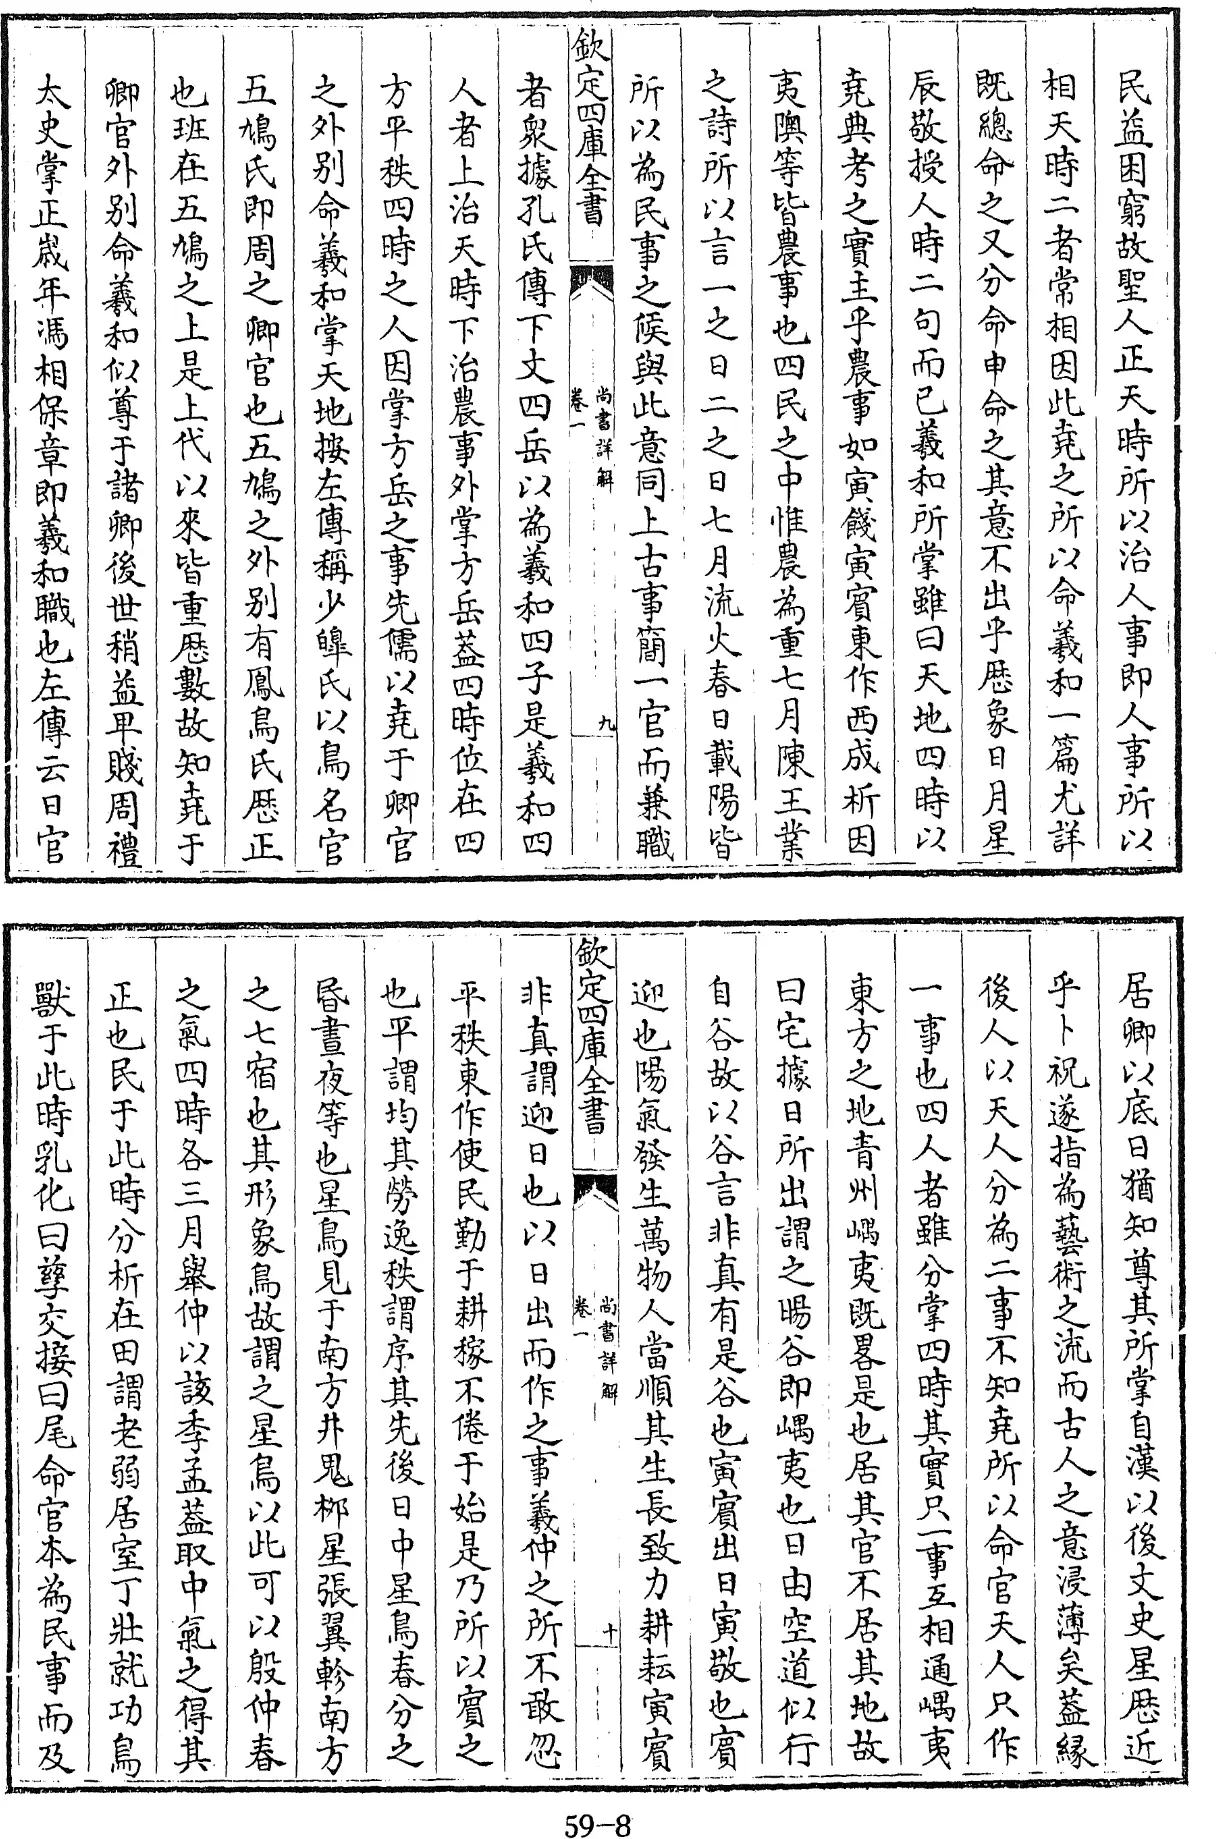 民益困窮故聖人正天時所以治人事即人事所以
相天時二者常相因此堯之所以命羲和一篇尤詳
既總命之又分命申命之其意不出乎厯象日月星
辰敬授人時二句而已羲和所掌雖曰天地四時以
堯典考之實主乎農事如寅餞寅賓東作西成析因
夷隩等皆農事也四民之中惟農為重七月陳王業
之詩所以言一之日二之日七月流火春日載陽皆
所以為民事之候與此意同上古事簡一官而兼職
欽定四庫全書
尚書詳解
卷一
九
者衆據孔氏傳下文四岳以為羲和四子是羲和四
人者上治天時下治農事外掌方岳葢四時位在四
方平秩四時之人因掌方岳之事先儒以堯于卿官
之外别命羲和掌天地按左傳稱少皥氏以鳥名官
五鳩氏即周之卿官也五鳩之外别有鳳鳥氏厯正
也班在五鳩之上是上代以來皆重厯數故知堯于
卿官外别命羲和似尊于諸卿後世稍益卑賤周禮
太史掌正歲年馮相保章即羲和職也左傳云日官
居卿以底日猶知尊其所掌自漢以後文史星厯近
乎卜祝遂指為藝術之流而古人之意浸薄矣葢緣
後人以天人分為二事不知堯所以命官天人只作
一事也四人者雖分掌四時其實只一事互相通嵎夷
東方之地青州嵎夷既畧是也居其官不居其地故
曰宅據日所出謂之暘谷即嵎夷也日由空道似行
自谷故以谷言非真有是谷也寅賓出日寅敬也賓
迎也陽氣發生萬物人當順其生長致力耕耘寅賓
欽定四庫全書
尚書詳解
卷一
十
非真謂迎日也以日出而作之事羲仲之所不敢忽
平秩東作使民勤于耕稼不倦于始是乃所以賓之
也平謂均其勞逸秩謂序其先後日中星鳥春分之
昏晝夜等也星鳥見于南方井鬼栁星張翼軫南方
之七宿也其形象鳥故謂之星鳥以此可以殷仲春
之氣四時各三月舉仲以該季孟葢取中氣之得其
正也民于此時分析在田謂老弱居室丁壯就功鳥
獸于此時乳化曰孳交接曰尾命官本為民事而及
59-8